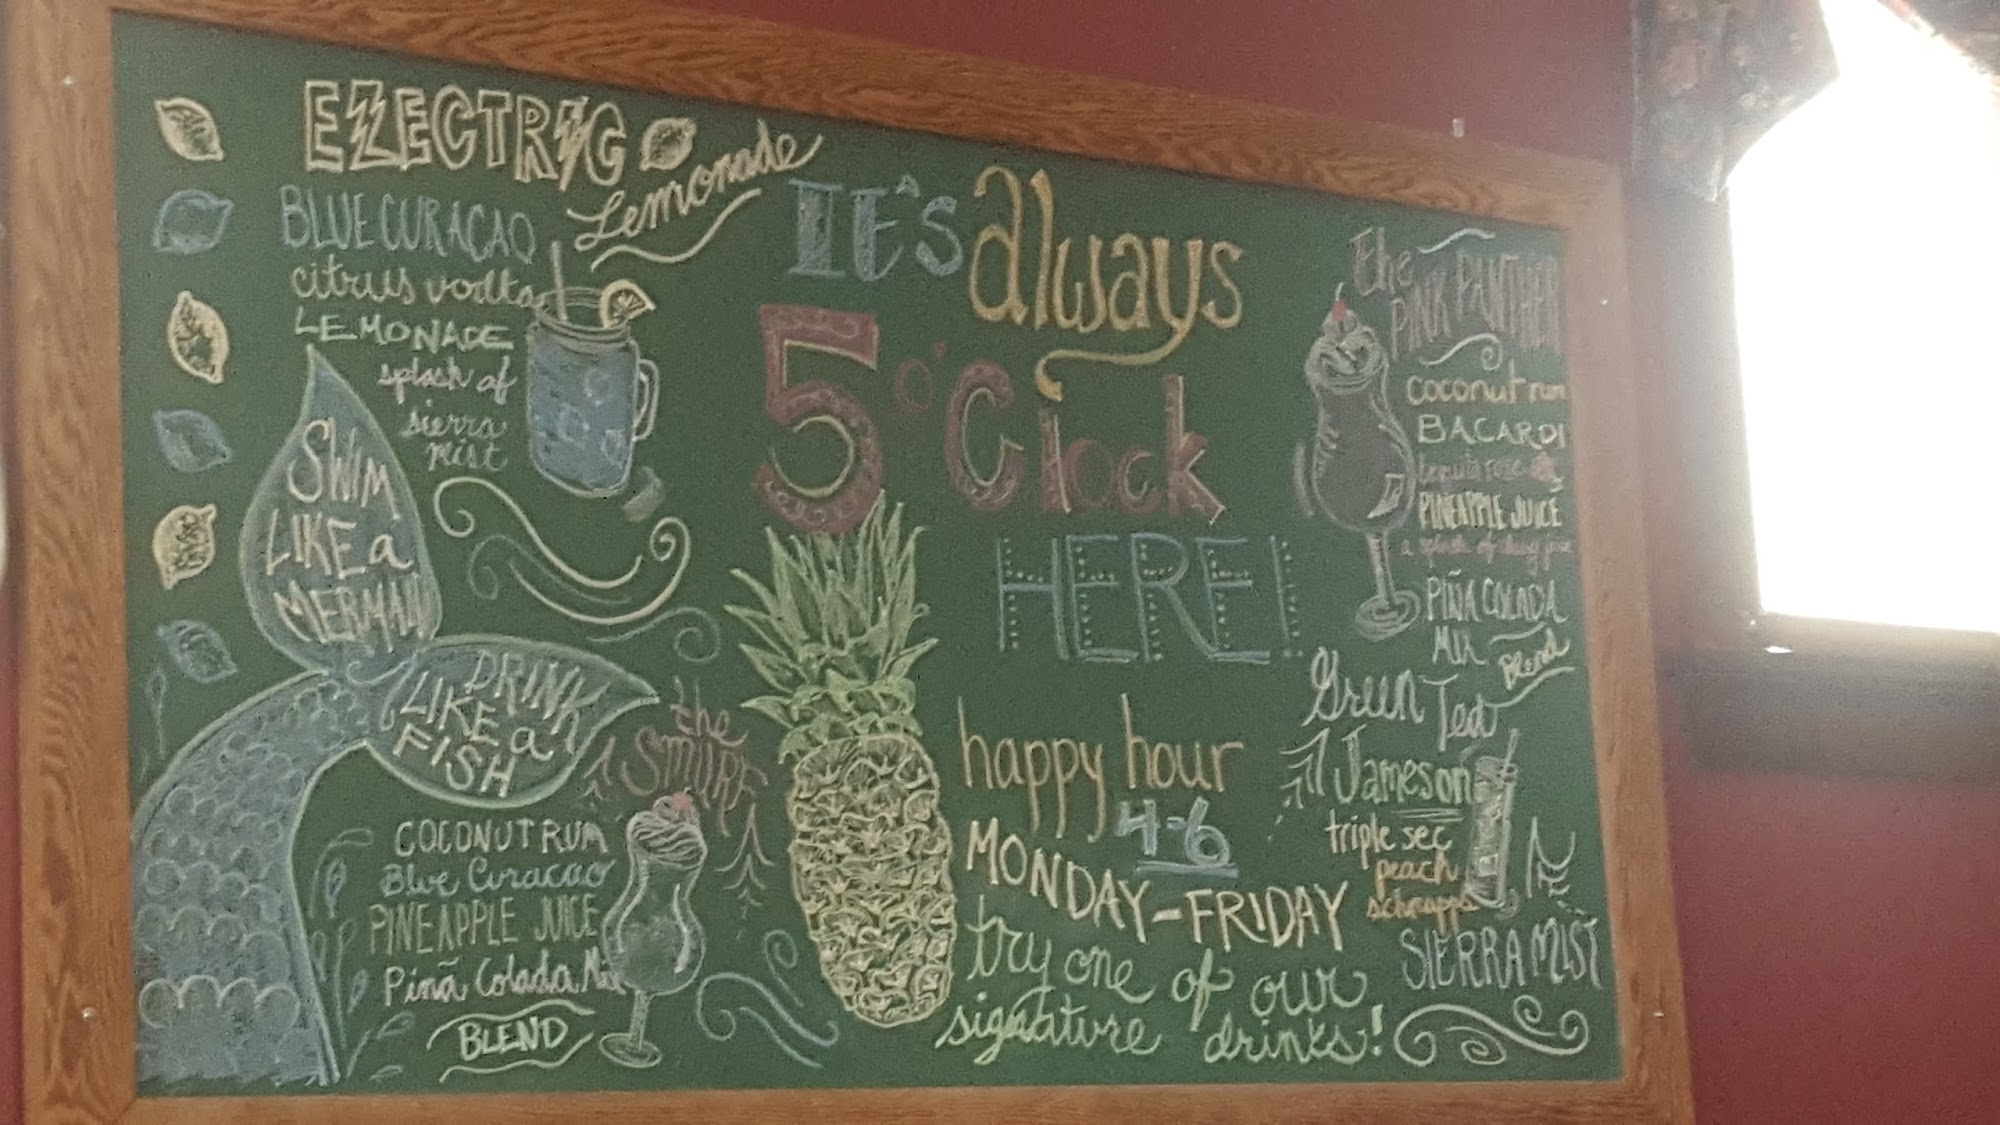 ELECTRIC
Lemonade
BLUE CURAÇAO
citrus vodka
LEMONADE
splash of
sierra
mist
SWIM
LIKE a
MERMAID
DRINK
LIKE a
FISH
the
SMURF
COCONUT RUM
Blue Curacao
PINEAPPLE JUICE
Piña Colada Mix
BLEND
It's always
5 o'Clock
HERE!
happy hour
4-6
MONDAY-FRIDAY
try one of our
signature drinks!
the
PINK PANTHER
coconut rum
BACARDI
PINEAPPLE JUICE
a splash of
PIÑA COLADA
MIX
Blend
Green Tea
Jameson
triple sec
peach
schnapps
SIERRA MIST